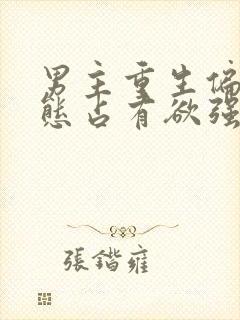 男主重生偏
态占有欲强
張鍇雍